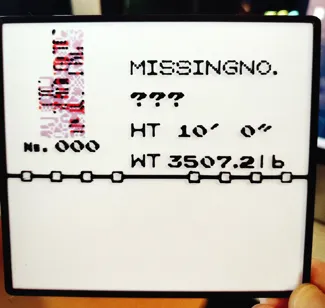 MISSINGNO.
???
HT 10′ 0″
No. 000
WT 3507.2lb